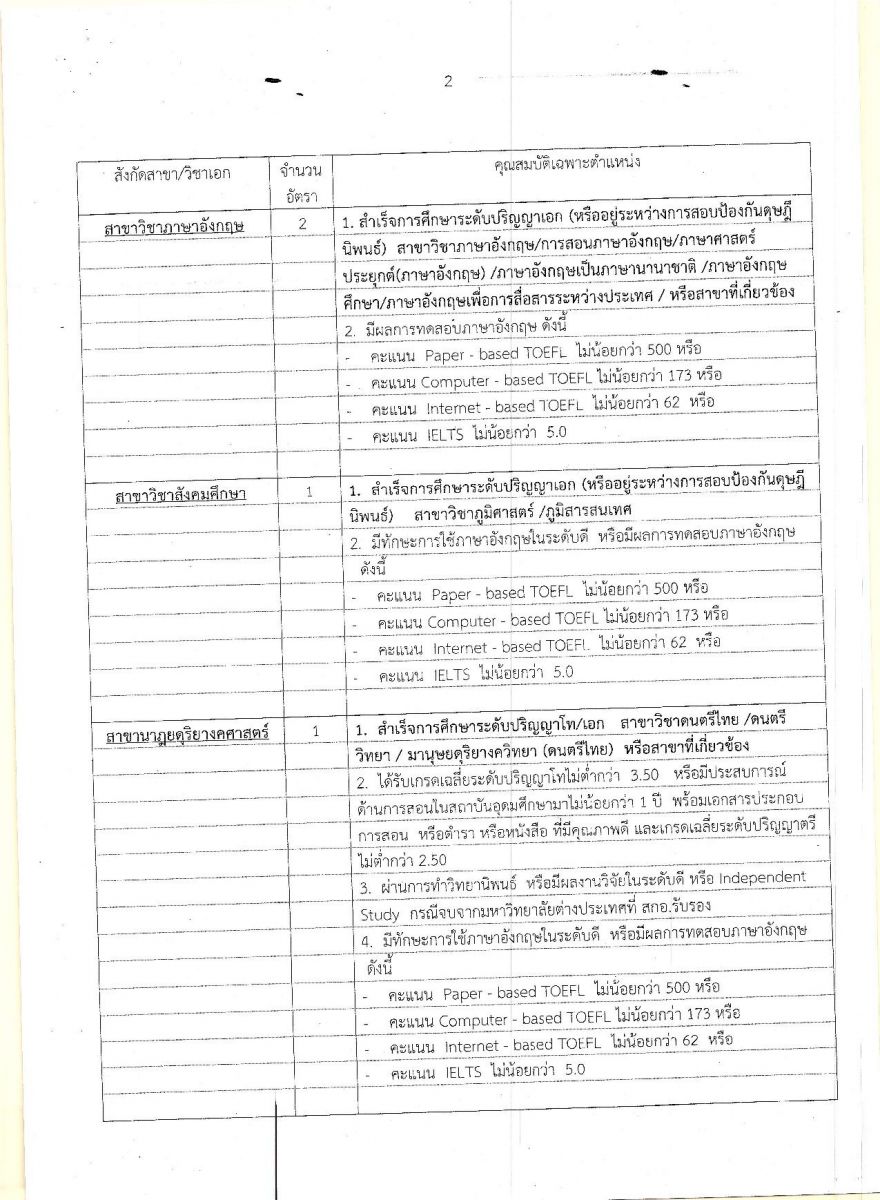 2
สังกัดสาขา/วิชาเอก
จำนวน
อัตรา
คุณสมบัติเฉพาะตำแหน่ง
สาขาวิชาภาษาอังกฤษ
2
1. สำเร็จการศึกษาระดับปริญญาเอก (หรืออยู่ระหว่างการสอบป้องกันดุษฎี
นิพนธ์) สาขาวิชาภาษาอังกฤษ/การสอนภาษาอังกฤษ/ภาษาศาสตร์
ประยุกต์(ภาษาอังกฤษ) /ภาษาอังกฤษเป็นภาษานานาชาติ /ภาษาอังกฤษ
ศึกษา/ภาษาอังกฤษเพื่อการสื่อสารระหว่างประเทศ / หรือสาขาที่เกี่ยวข้อง
2. มีผลการทดสอบภาษาอังกฤษ ดังนี้
- คะแนน Paper - based TOEFL ไม่น้อยกว่า 500 หรือ
- คะแนน Computer - based TOEFL ไม่น้อยกว่า 173 หรือ
- คะแนน Internet - based TOEFL ไม่น้อยกว่า 62 หรือ
- คะแนน IELTS ไม่น้อยกว่า 5.0
สาขาวิชาสังคมศึกษา
1
1. สำเร็จการศึกษาระดับปริญญาเอก (หรืออยู่ระหว่างการสอบป้องกันดุษฎี
นิพนธ์) สาขาวิชาภูมิศาสตร์ /ภูมิสารสนเทศ
2. มีทักษะการใช้ภาษาอังกฤษในระดับดี หรือมีผลการทดสอบภาษาอังกฤษ
ดังนี้
- คะแนน Paper - based TOEFL ไม่น้อยกว่า 500 หรือ
- คะแนน Computer - based TOEFL ไม่น้อยกว่า 173 หรือ
- คะแนน Internet - based TOEFL ไม่น้อยกว่า 62 หรือ
- คะแนน IELTS ไม่น้อยกว่า 5.0
สาขานาฏยดุริยางคศาสตร์
1
1. สำเร็จการศึกษาระดับปริญญาโท/เอก สาขาวิชาดนตรีไทย /ดนตรี
วิทยา / มานุษยดุริยางควิทยา (ดนตรีไทย) หรือสาขาที่เกี่ยวข้อง
2. ได้รับเกรดเฉลี่ยระดับปริญญาโทไม่ต่ำกว่า 3.50 หรือมีประสบการณ์
ด้านการสอนในสถาบันอุดมศึกษามาไม่น้อยกว่า 1 ปี พร้อมเอกสารประกอบ
การสอน หรือตำรา หรือหนังสือ ที่มีคุณภาพดี และเกรดเฉลี่ยระดับปริญญาตรี
ไม่ต่ำกว่า 2.50
3. ผ่านการทำวิทยานิพนธ์ หรือมีผลงานวิจัยในระดับดี หรือ Independent
Study กรณีจบจากมหาวิทยาลัยต่างประเทศที่ สกอ.รับรอง
4. มีทักษะการใช้ภาษาอังกฤษในระดับดี หรือมีผลการทดสอบภาษาอังกฤษ
ดังนี้
- คะแนน Paper - based TOEFL ไม่น้อยกว่า 500 หรือ
- คะแนน Computer - based TOEFL ไม่น้อยกว่า 173 หรือ
- คะแนน Internet - based TOEFL ไม่น้อยกว่า 62 หรือ
- คะแนน IELTS ไม่น้อยกว่า 5.0